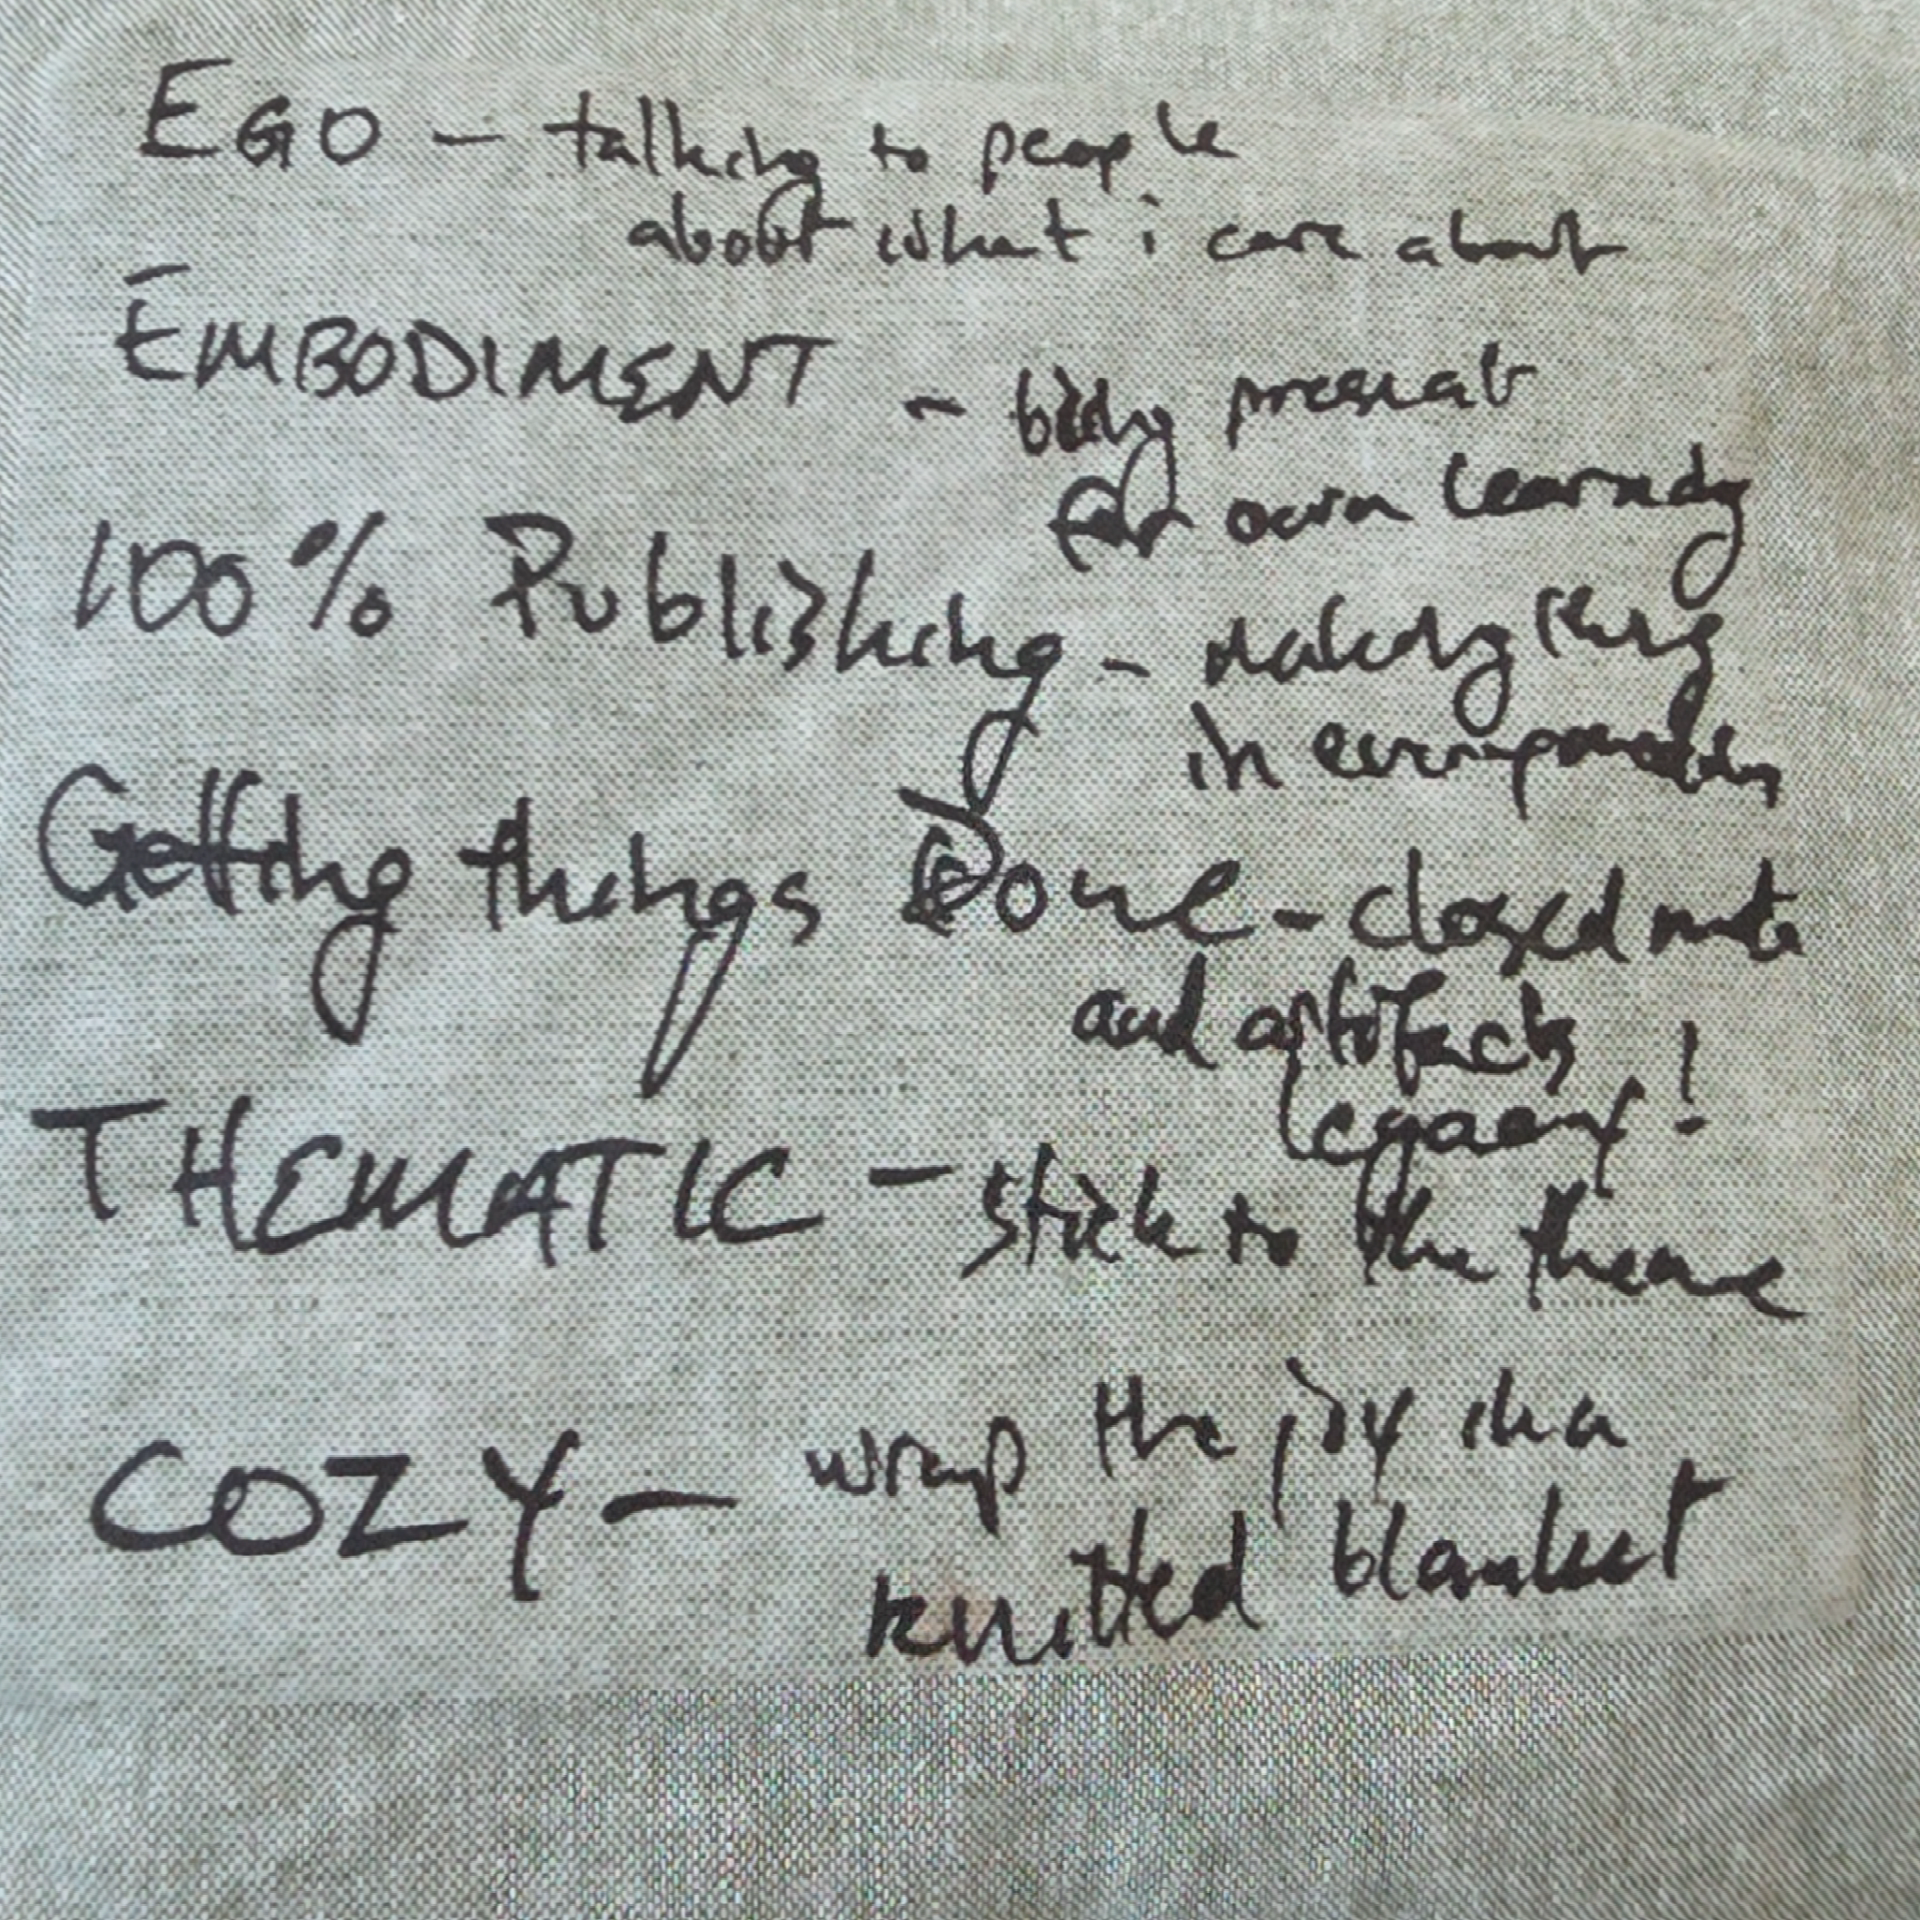 EGO - talking to people
about what i care about
EMBODIMENT - being present
for own learning
100% Publishing - making things
in
Getting things Done - closed note
and artifacts
legacy!
THEMATIC - stick to the theme
COZY - wrap the joy in a
knitted blanket